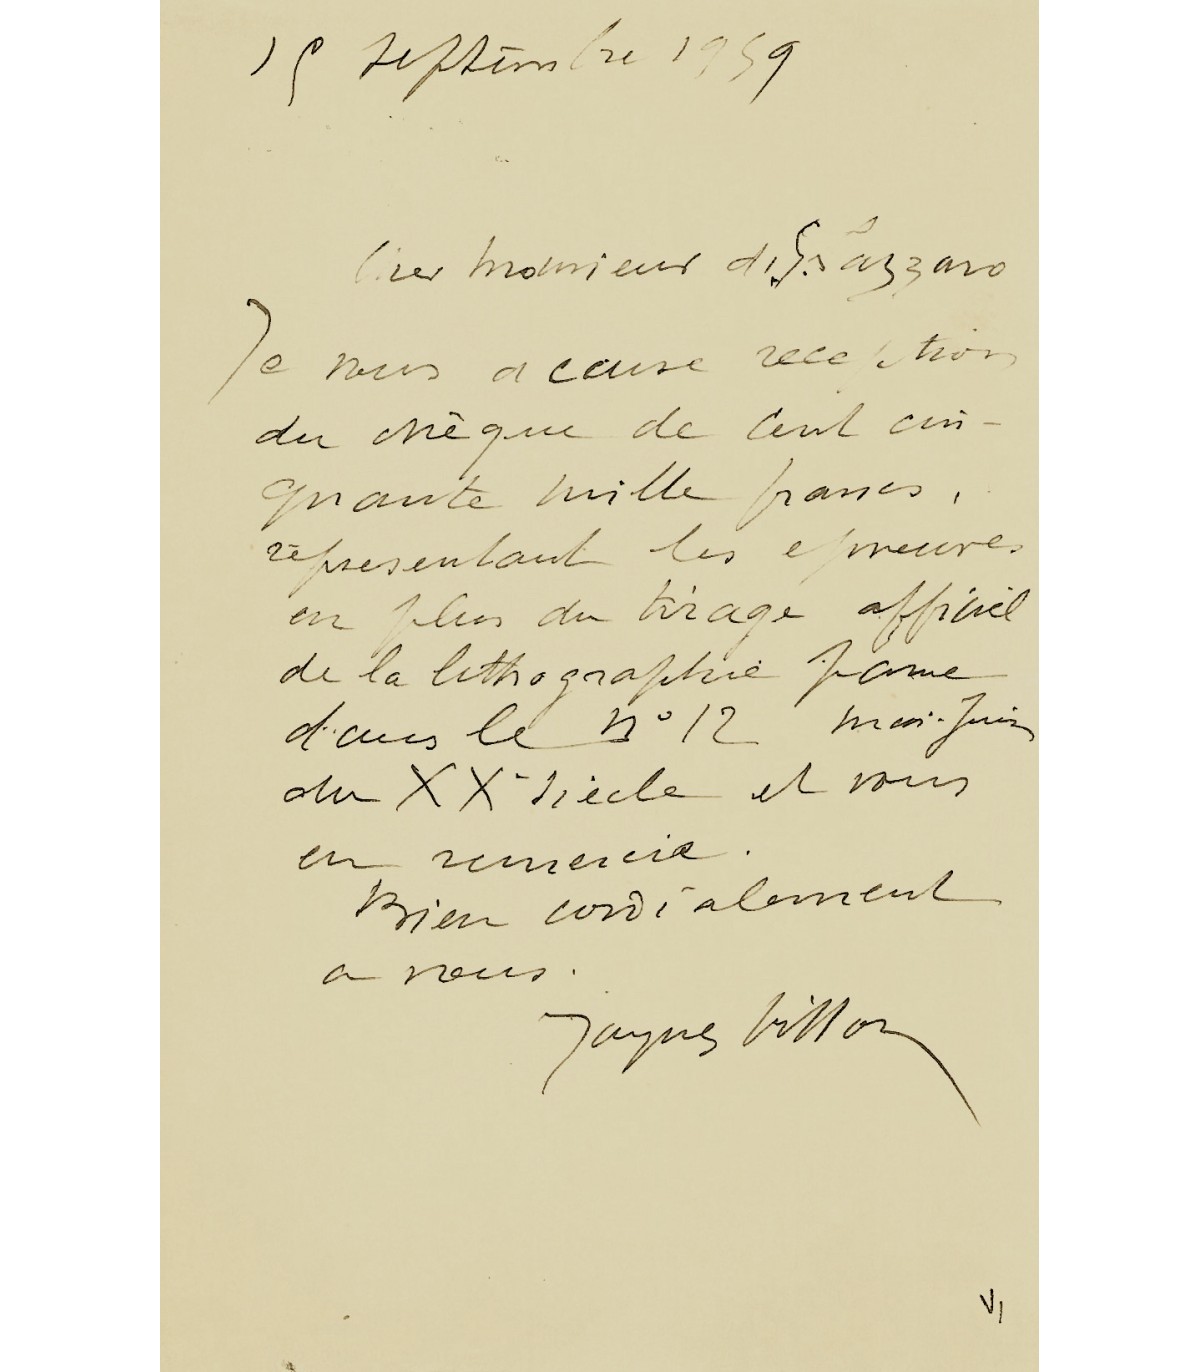 15 septembre 1959
Cher Monsieur di San Lazzaro
Je vous accuse reception
du chèque de cent cin-
quante mille francs,
représentant les epreuves
en plus du tirage officiel
de la lithographie parue
dans le n° 12 mai-Juin
du XXe siècle et vous
en remercie.
Bien cordialement
a vous.
Jacques Villon
VI